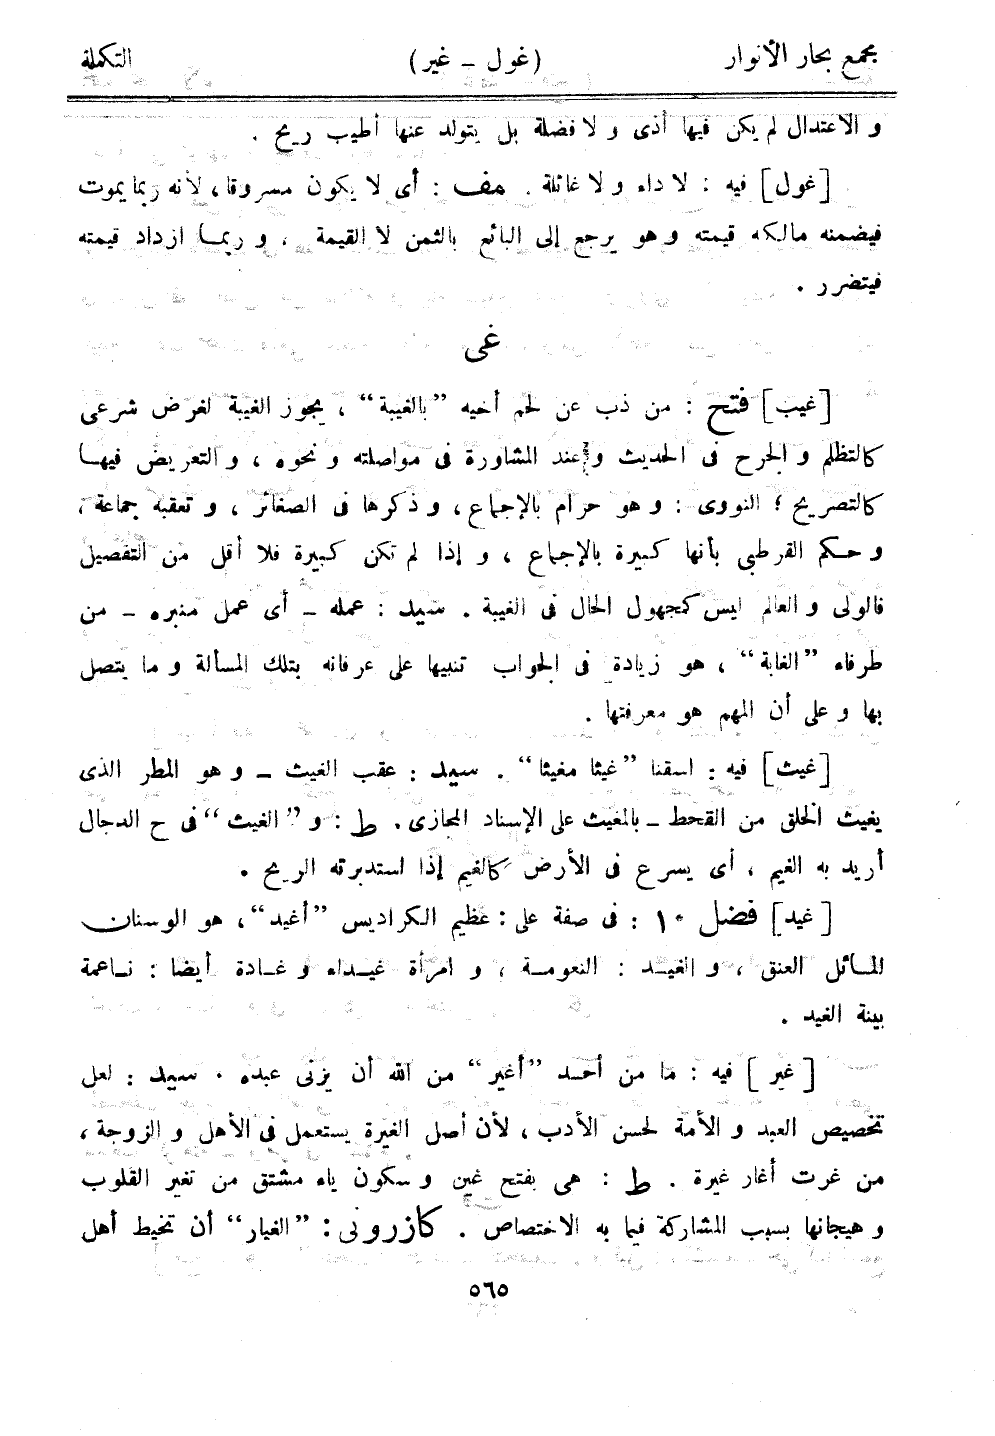 مجمع بحار الأنوار (غول - غير) التكملة
و الاعتدال لم يكن فيها أذى و لا فضلة بل يتولد عنها أطيب ريح .
[غول] فيه : لا داء و لا غائلة . مف : أى لا يكون مسروقا، لأنه ربما يموت
فيضمنه مالكه قيمته و هو يرجع إلى البائع بالثمن لا القيمة ، و ربمـا ازداد قيمته
فيتضرر .
غى
[غيب] فتح : من ذب عن لحم أخيه ”بالغيبة“ ، يجوز الغيبة لغرض شرعى
كالتظلم و الجرح فى الحديث و عند المشاورة فى مواصلته و نحوه ، و التعريض فيهـا
كالتصريح ؛ النووى : و هو حرام بالإجماع، و ذكرها فى الصغائر ، و تعقبه جماعة ،
و حكم القرطبى بأنها كبيرة بالإجماع ، و إذا لم تكن كبيرة فلا أقل من التفصيل
فالولى و العالم ليس كمجهول الحال فى الغيبة . سيد : عمله - أى عمل منبره - من
طرفاء ”الغابة“ ، هو زيادة فى الجواب تنبيها على عرفانه بتلك المسألة و ما يتصل
بها و على أن المهم هو معرفتها .
[غيث] فيه : اسقنا ”غيثا مغيثا“ . سيد : عقب الغيث - و هو المطر الذى
يغيث الخلق من القحط - بالمغيث على الإسناد المجازى. ط : و ”الغيث“ فى ح الدجال
أريد به الغيم ، أى يسرع فى الأرض كالغيم إذا استدبرته الريح .
[غيد] فضل ١٠ : فى صفة على : عظيم الكراديس ”أغيد“، هو الوسنان
المـائل العنق ، و الغيـد : النعومـة ، و امرأة غيـداء و غـادة أيضا : نـاعمة
بينة الغيد .
[غير] فيه : ما من أحـد ”أغير“ من الله أن يزنى عبده . سيد : لعل
تخصيص العبد و الأمة لحسن الأدب ، لأن أصل الغيرة يستعمل فى الأهل و الزوجة ،
من غرت أغار غيرة . ط : هى بفتح غين و سكون ياء مشتق من تغير القلوب
و هيجانها بسبب المشاركة فيما به الاختصاص . كازرونى : ”الغيار“ أن تخيط أهل
٥٦٥